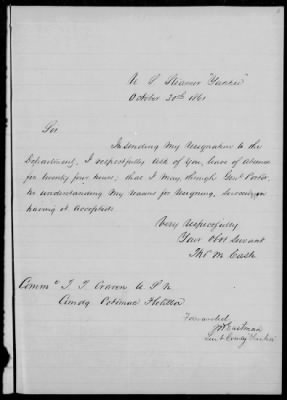 U S Steamer "Yankee"
October 30th 1861
Sir
In sending my resignation to the
Department, I respectfully ask of you, leave of absence
for twenty four hours; that I may, through Genl Porter,
he understanding my reasons for resigning, succeed in
having it accepted.
Very Respectfully
Your Obt Servant
Thos M Cash
Comm T. T. Craven U S N
Comdg Potomac Flotilla
Forwarded
Eastman
Lieut Comdg "Yankee"